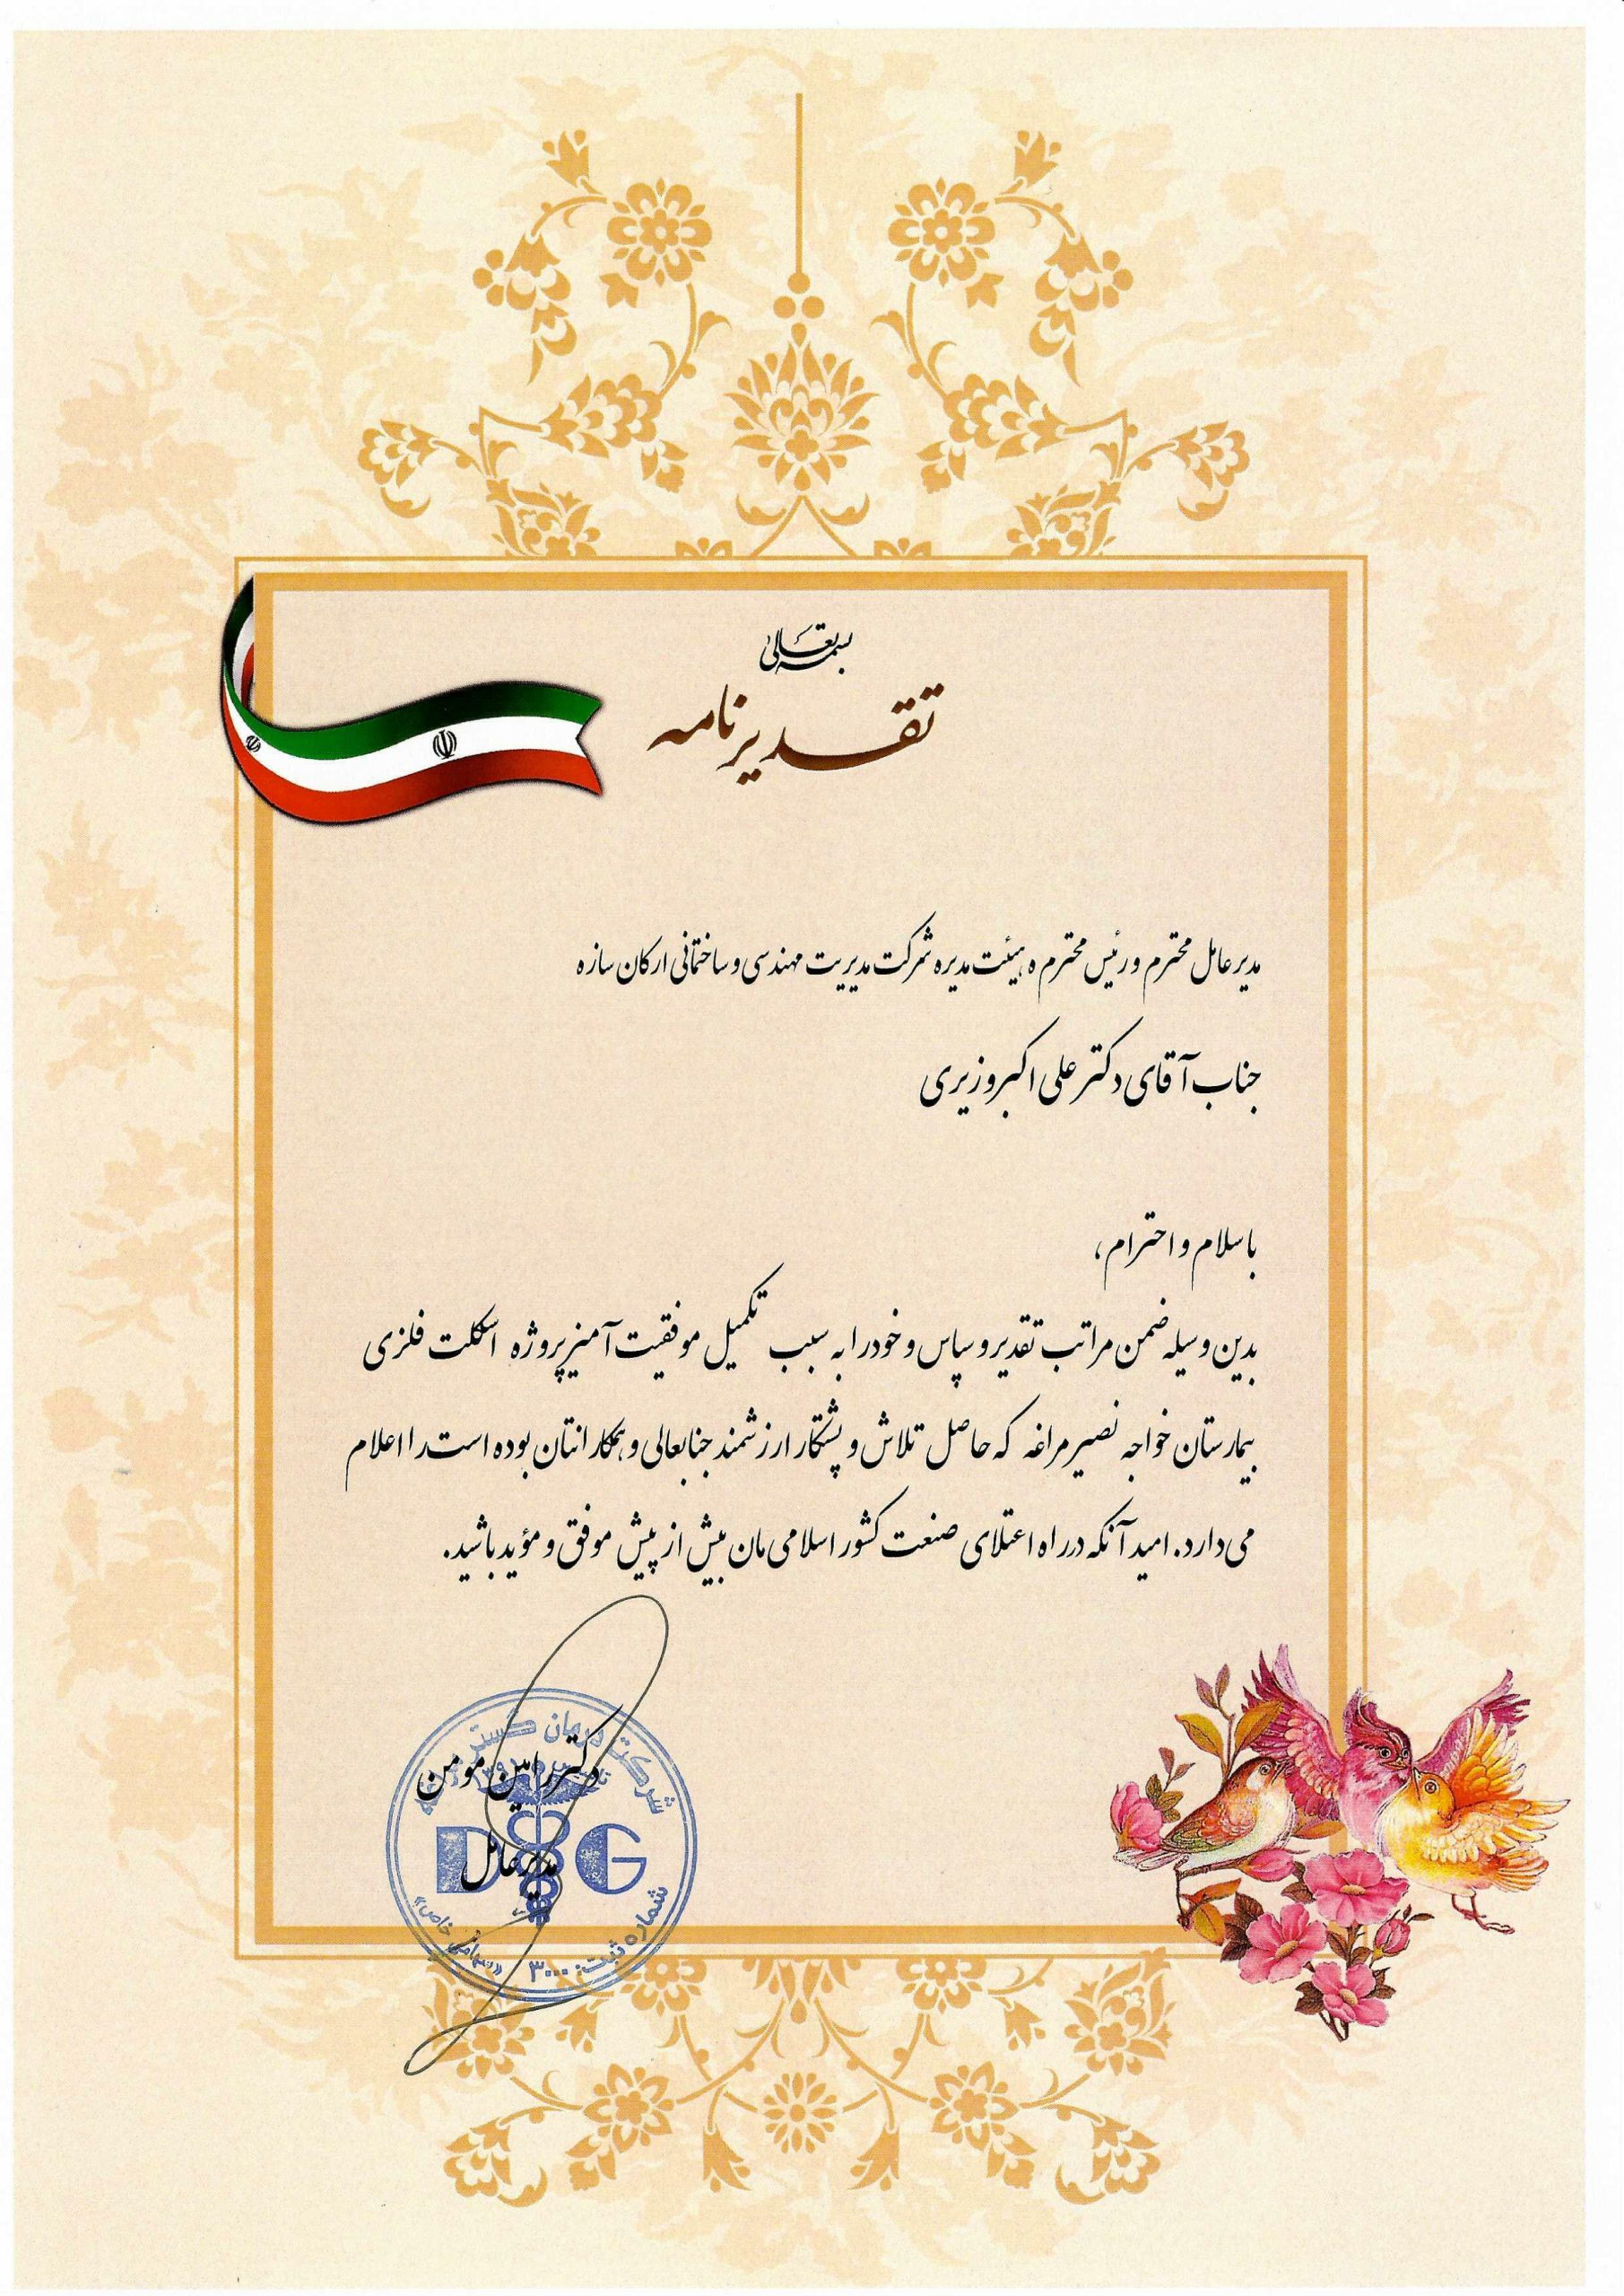 بسمه تعالی
تقدیرنامه
مدیرعامل محترم و رئیس محترم ه هیئت مدیره شرکت مدیریت مهندسی و ساختمانی ارکان سازه
جناب آقای دکتر علی اکبر وزیری
با سلام و احترام،
بدین وسیله ضمن مراتب تقدیر و سپاس و خود را به سبب تکمیل موفقیت آمیز پروژه اسکلت فلزی
بیمارستان خواجه نصیر مراغه که حاصل تلاش و پشتکار ارزشمند جنابعالی و همکارانتان بوده است را اعلام
می دارد. امید آنکه در راه اعتلای صنعت کشور اسلامی مان بیش از پیش موفق و مؤید باشید.
شرکت درمان گستر
دکتر رامین مومن
DG
مدیرعامل
شماره ثبت: ۳۰۰۰
«سهامی خاص»